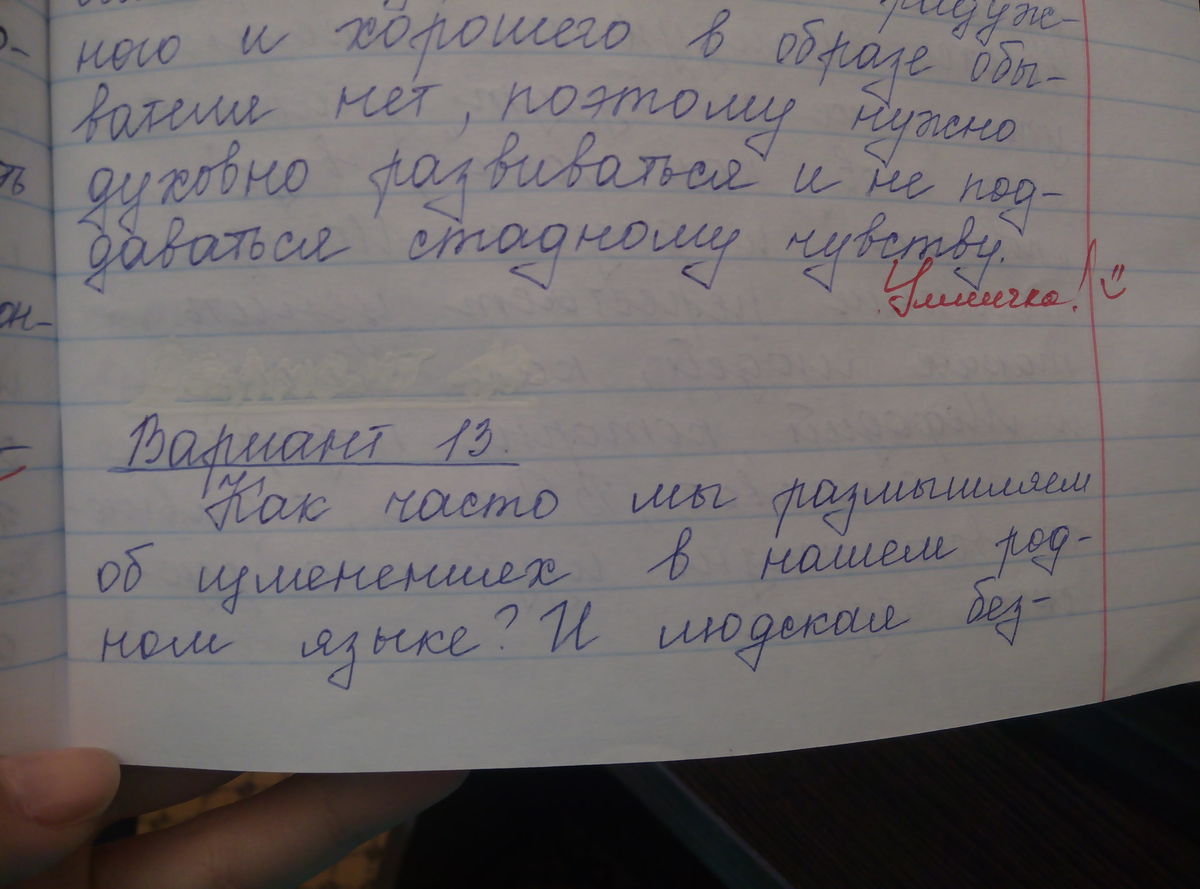 радуж-
ного и хорошего в образе обы-
вателя нет, поэтому нужно
духовно развиваться и не под-
даваться стадному чувству.
Умничка!
Вариант 13.
Как часто мы размышляем
об изменениях в нашем род-
ном языке? И людская без-